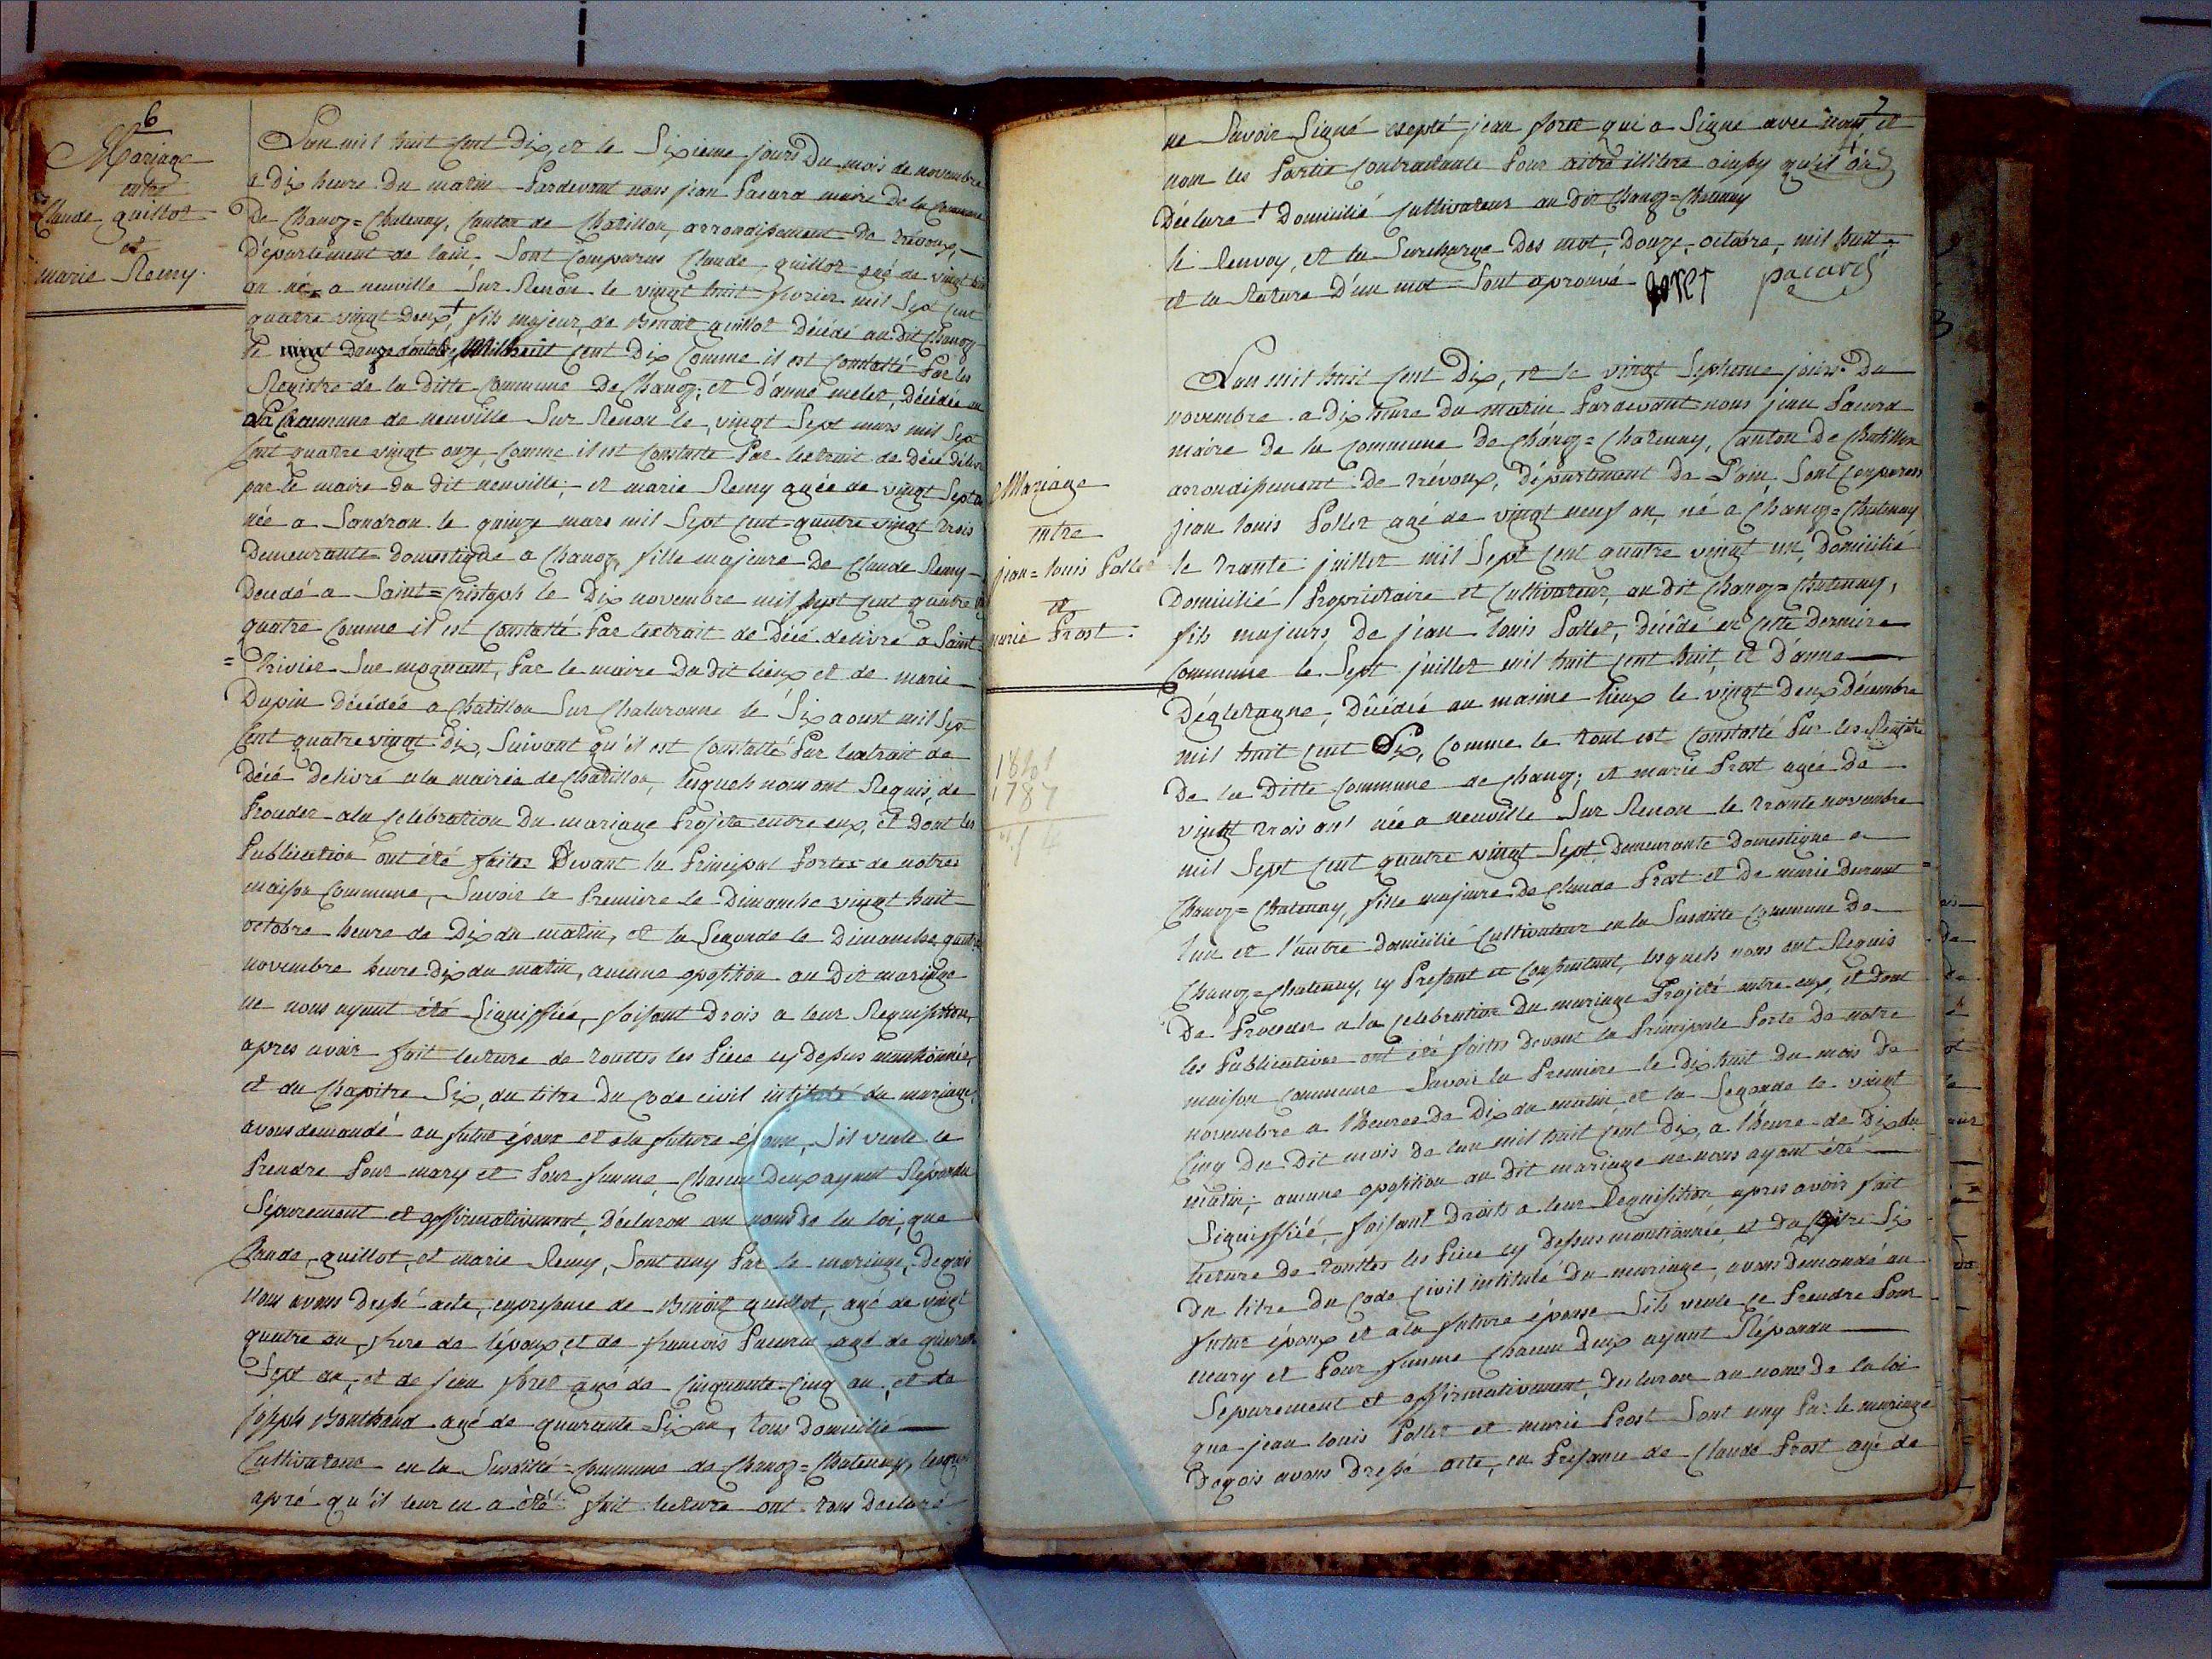 6
Mariage
entre
Claude guillot
et
marie Remy.
Lan mil huit Cent Dix et le Sixieme jours Du mois de novembre
a Dix heure Du matin Pardevant nous jean Pacard maire De la Commune
De Chanoz=Chatenay, Canton de Chatillon, arrondissement De trévoux,
Département de lain, Sont Comparus Claude guillot agé de vingt huit
an né a neuville Sur Renon le vingt huit fevrier mil Sept Cent
quatre vingt Deux †, fils majeur de Benoit guillot Décédé au dit Chanoz
le Douze d'octobre Mil huit Cent Dix Comme il est Constatté Par les
Registre de la Ditte Commune De Chanoz; et D'anne melet, Décédée en
la Commune de neuville Sur Renon le vingt Sept mars mil Sept
Cent quatre vingt onze, Comme il est Constatté Par lextrait de Décé Délivré
par le maire du dit neuville; et marie Remy agée de vingt Sept an
née a Sandran le quinze mars mil Sept Cent quatre vingt trois
Demeurante Domestique a Chanoz, fille majeure De Claude Remy
Décédé a Saint=Cristoph le Dix novembre mil Sept Cent quatre vingt
quatre Comme il est Constatté Par lextrait de Décé delivré a Saint
=trivier Sur mognant, Par le maire Du dit lieux et de marie
Dupin Décédée a Chatillon Sur Chalaronne le Six aoust mil Sept
Cent quatre vingt Dix, Suivant qu'il est Constatté Par lextrait de
Décé Delivré a la mairie de Chatillon, lesquels nous ont Requis, de
Proceder a la Celébration Du mariage Projeté entre eux, et Dont les
Publication ont été faites Devant la Principal Porte de notre
maison Commune, Savoir la Premiere le Dimanche vingt huit
octobre heure de Dix du matin, et la Segonde le Dimanche quatre
novembre heure Dix du matin, aucune oposition au Dit mariage
ne nous ayant été Signiffiée, faisant Droit a leur Requisition,
apres avoir fait lecture de touttes les Piece cy Dessus mentionnée,
et du Chapitre Six, du titre Du Code civil intitulé du mariage,
avons demandé au futur époux et a la future épouse, S'il veule ce
Prendre Pour mary et Pour femme, Chacun Deux ayant Répondu
Séparement et affirmativement, Déclaron au nom de la loi, que
Claude guillot, et marie Remy, Sont uny Par le mariage, De quoi
nous avons Dressé acte, en presance de Benoit guillot, agé de vingt
quatre an, frere de l'époux, et de francois Pacard agé de quarante
Sept an, et de jean foret agé de Cinquante Cinq an, et de
joseph Bouthaud agé de quarante=Six an, tous Domicilié
Cultivateur en la Susditte Commune de Chanoz=Chatenay, lesquel
apré qu'il leur en a été fait lecture ont tous Declaré
7
ne Savoir Signé excepté jean foret qui a Signé avec nous, et
non les Partie Contractante Pour aitre illitere ainsy qu'il on
Déclaré † Domicilié Cultivateur au dit Chanoz=Chatenay
le Renvoy, et la Surcharge Des mot, Douze, octobre, mil huit,
et la Rature D'un mot Sont aprouvé foret pacard
Mariage
entre
jean=louis Pollet
et
marie Prost.
1810
1787
Lan mil huit Cent Dix, et le vingt Septieme jours Du
novembre a Dix heure Du matin Pardevant nous jean Pacard
maire De la Commune De Chanoz=Chatenay, Canton De Chatillon
arrondissement De trévoux, Département De L'ain, Sont Comparus
jean louis Pollet agé de vingt neuf an, né a Chanoz=Chatenay
le trante juillet mil Sept Cent quatre vingt un, Domicilié
Domicilié Propriétaire et Cultivateur, au Dit Chanoz=Chatenay,
fils majeurs De jean louis Pollet, Décédé en Cette Derniere
Commune le Sept juillet mil huit Cent huit, et D'anne
Dégletagne, Décédé au maime lieux le vingt Deux Décembre
mil huit Cent Six, Comme le tout est Constatté Par les Registre
De la Ditte Commune de Chanoz; et marie Prost agée De
vingt trois an née a neuville Sur Renon le trante novembre
mil Sept Cent quatre vingt Sept, Demeurante Domestique a
Chanoz=Chatenay, fille majeure De Claude Prost et De marie Durant
lun et l'autre Domicilié Cultivateur en la Susditte Commune De
Chanoz=Chatenay, cy Presant et Consentant, lesquels nous ont Requis
De Proceder a la Celebration Du mariage Projeté entre eux, et Dont
les Publications ont été faites Devant la Principale Porte De notre
maison Commune Savoir la Premiere le Dix huit Du mois De
novembre a l'heures De Dix du matin et la Segonde le vingt
Cinq Du Dit mois de lan mil huit Cent Dix, a l'heure de Dix du
matin; aucune oposition au Dit mariage ne nous ayant été
Signiffiée, faisant Droit a leur Requisition, apres avoir fait
lecture De touttes les Piece cy Dessus mentionnée et Du Six
Du titre Du Code Civil intitulé Du mariage, avons Demandé au
futur époux et a la future épouse S'ils veule ce Prendre Pour
mary et Pour femme Chacun Deux ayant Répondu
Séparement et affirmativement, Declaron au nom De la loi
que jean louis Pollet et marie Prost Sont uny Par le mariage
De quois avons Dressé acte, en Presance de Claude Prost agé de